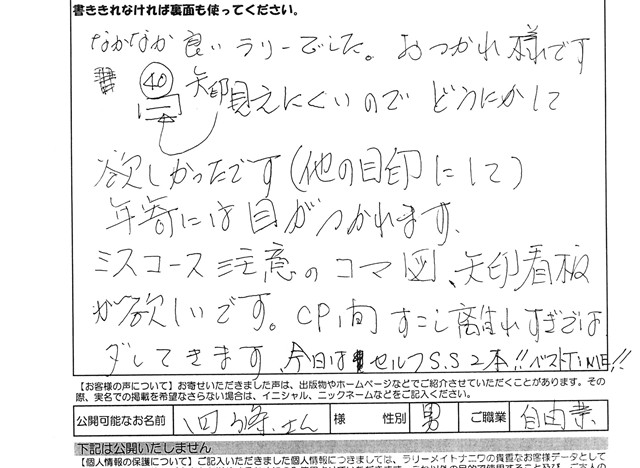 書ききれなければ裏面も使ってください。
なかなか良いラリーでした。おつかれ様です
40 矢印見えにくいのでどうにかして
欲しかったです(他の目印にして)
年寄には目がつかれます、
ミスコース注意のコマ図、矢印看板
が欲しいです。CP間すこし離れすぎでは
ダレてきます、今日はセルフS.S 2本!!ベストTIME!!
【お客様の声について】お寄せいただきました声は、出版物やホームページなどでご紹介させていただくことがあります。その
際、実名での掲載を希望なさらない場合は、イニシャル、ニックネームなどをご記入ください。
公開可能なお名前 四条さん 様 性別 男 ご職業 自由業
下記は公開いたしません
【個人情報の保護について】ご記入いただきました個人情報につきましては、ラリーメイトナニワの貴重なお客様データとして